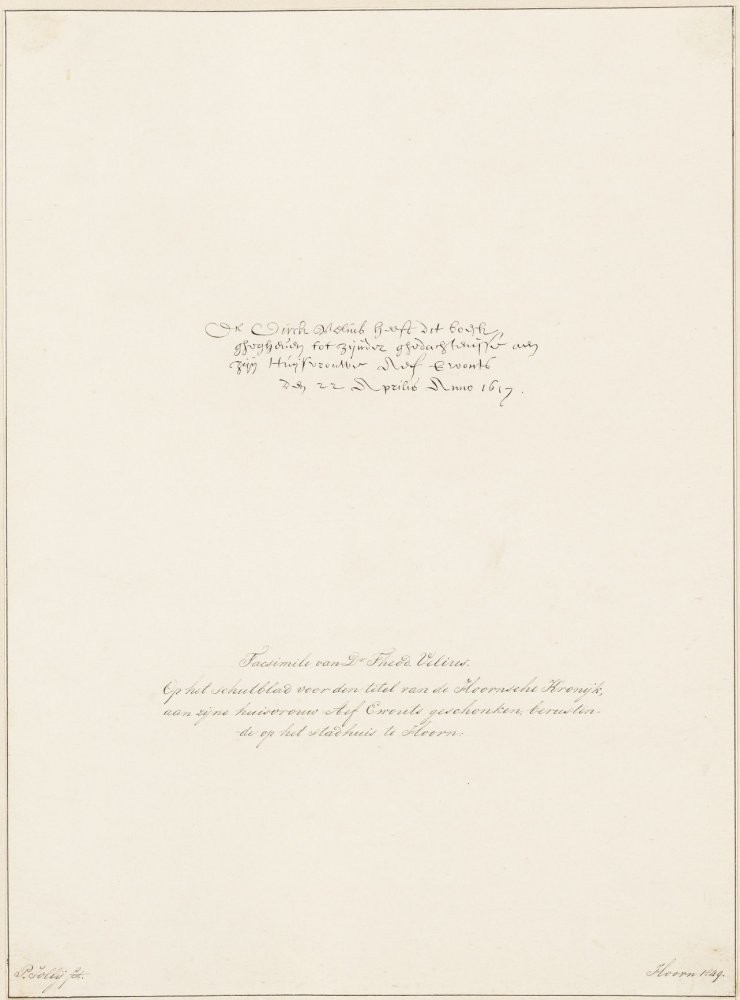 Dr Dirck Velius heeft dit boeck
ghegheven tot zijnder ghedachtenisse aen
zijn Huijsvrouwe Aef Ewouts
den 22 Aprilis Anno 1617.
Facsimile van Dr. Theod. Velius.
Op het schutblad voor den titel van de Hoornsche Kronijk,
aan zijne huisvrouw Aef Ewouts geschonken, berusten-
de op het stadhuis te Hoorn.
Hoorn 1849.